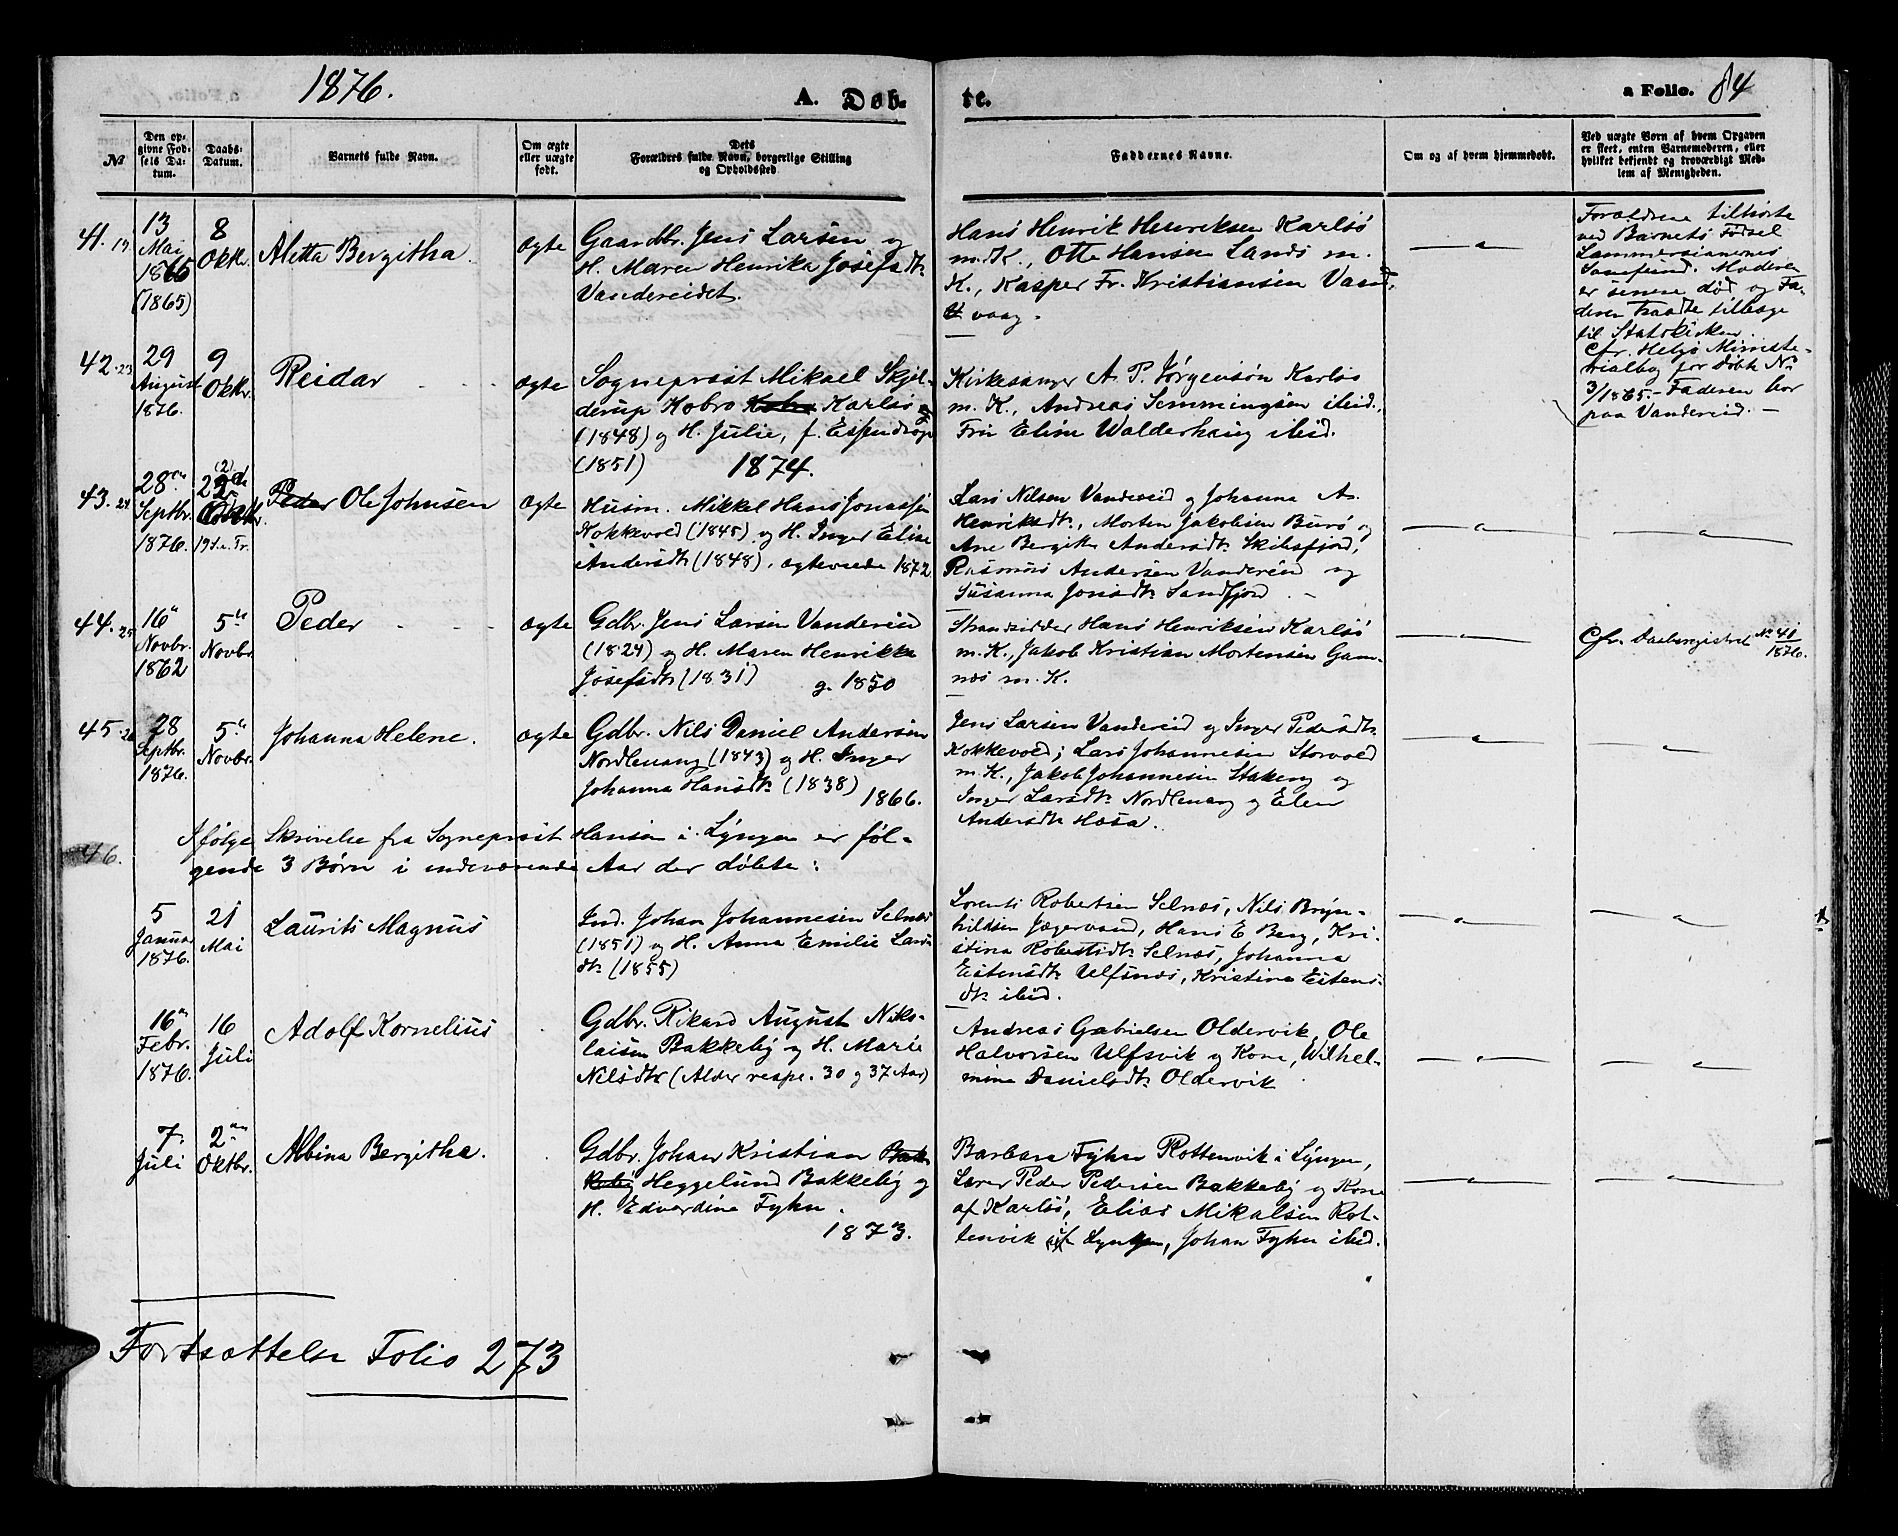 1876.
A. Døb-
te.
a Folio. 84
№
Den op-
givne Fød-
sels Da-
tum.
Daabs-
Datum.
Barnets fulde Navn.
Om ægte
eller uægte
født.
Dets
Forældres fulde Navn, borgerlige Stilling
og Opholdssted.
Faddernes Navne.
Om og af hvem hjemmedøbt.
Ved uægte Børn af hvem Opgaven
er skeet, enten Barnemoderen, eller
hvilket bekjendt og troværdigt Med-
lem af Menigheden.
41. 19.
13
Mai
1865
(1865)
8
Oktbr.
Aletta Bergitha.
ægte
Gaardbr. Jens Larsen og
H. Maren Henrika Josefsdtr
Vandereidet.
Hans Henrik Henriksen Karlsö
m. K., Otte Hansen Lands m.
K., Kasper Fr. Kristiansen Vand,
vaag.
Forældrene tilhørte
ved Barnets Fødsel
Lammersianernes
Samfund. Moderen
er senere død og Fa-
deren traadte tilbage
til Statskirken.
Cfr. Helgø Ministe-
rialbog for Døbte No
3/1865. - Faderen bor
paa Vandereid. -
42. 23
29
August
1876.
9
Oktbr.
Reidar
ægte
Sogneprest Mikael Skjel-
derup Hobro Karlsö
(1848) og H. Julie, f. Espendrop
(1851) 1874.
Kirkesanger A. P. Jørgensøn Karlsö
m. K., Andreas Semmingsen ibid.,
Fru Eline Walderhaug ibid.
43. 24
28de
Septbr.
1876.
22de
Oktbr.
19 S. e. Tr.
Peder Ole Johnsen
ægte
Husm. Mikkel Hans Jonassen
Kokkevold (1845) og H. Inger Elise
Andersdtr (1848). ægteviede 1872
Lars Nilsen Vandereid og Johanna A.
Henriksdtr, Morten Jakobsen Burö og
Ane Bergitte Andersdtr Skibsfjord,
Rasmus Andersen Vandereid og
Susanna Jonsdtr Sandfjord. -
44. 25
16de
Novbr.
1862
5te
Novbr.
Peder
ægte
Gdbr. Jens Larsen Vandereid
(1824) og H. Maren Henrikke
Josefsdtr (1831) g. 1850
Strandsidder Hans Henriksen Karlsö
m. K., Jakob Kristian Mortensen Gam-
næs m. K.
Cfr. Daabsregistret No 41/1876.
45. 26
28
Septbr.
1876.
5te
Novbr.
Johanna Helene.
ægte
Gdbr. Nils Daniel Andersen
Nordlenang (1843) og H. Inger
Johanna Hansdtr (1838)
1866.
Jens Larsen Vandereid og Inger Pedersdtr
Kokkevold; Lars Johannesen Storvold
m. K., Jakob Johannesen Stakeng og
Inger Larsdtr Nordlenang og Elen
Andersdtr Hæsa.
46.
Ifølge Skrivelse fra Sogneprest Hansen i Lyngen er føl-
gende 3 Børn i indeværende Aar der døbte:
5
Januar
1876.
21
Mai
Laurits Magnus
Ind. Johan Johannesen Selnæs
(1851) og H. Anna Emilie Lars-
dtr (1855)
Lorents Robertsen Selnæs, Nils Bryn-
hildsen Jægervand, Hans E Berg, Kri-
stina Robertsdtr Selnæs, Johanna
Eistensdtr Ulfsnæs, Kristina Eistens-
dtr ibid.
16de
Febr.
1876.
16
Juli
Adolf Kornelius
Gdbr. Rikard August Niko-
laisen Bakkeby og H. Marie
Nilsdtr (Alder respe. 30 og 37 Aar)
Andreas Gabrielsen Oldervik, Ole
Halvorsen Ulfsvik og Kone, Wilhel-
mine Danielsdtr Oldervik
7
Juli
2den
Oktbr.
Albina Bergitha.
Gdbr. Johan Kristian Bak-
keby Heggelund Bakkeby og
H. Edvardine Fyhn.
1873.
Barbara Fyhn Rottenvik i Lyngen,
Lærer Peder Pedersen Bakkeby og Kone
af Karlsö, Elias Mikalsen Rot-
tenvik i Lyngen, Johan Fyhn ibid.
Fortsættelse Folio 273